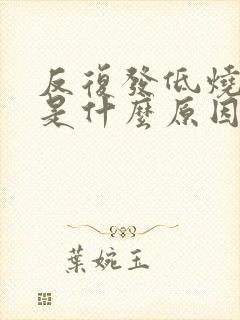 反復發低燒
是什麼原因
葉婉玉